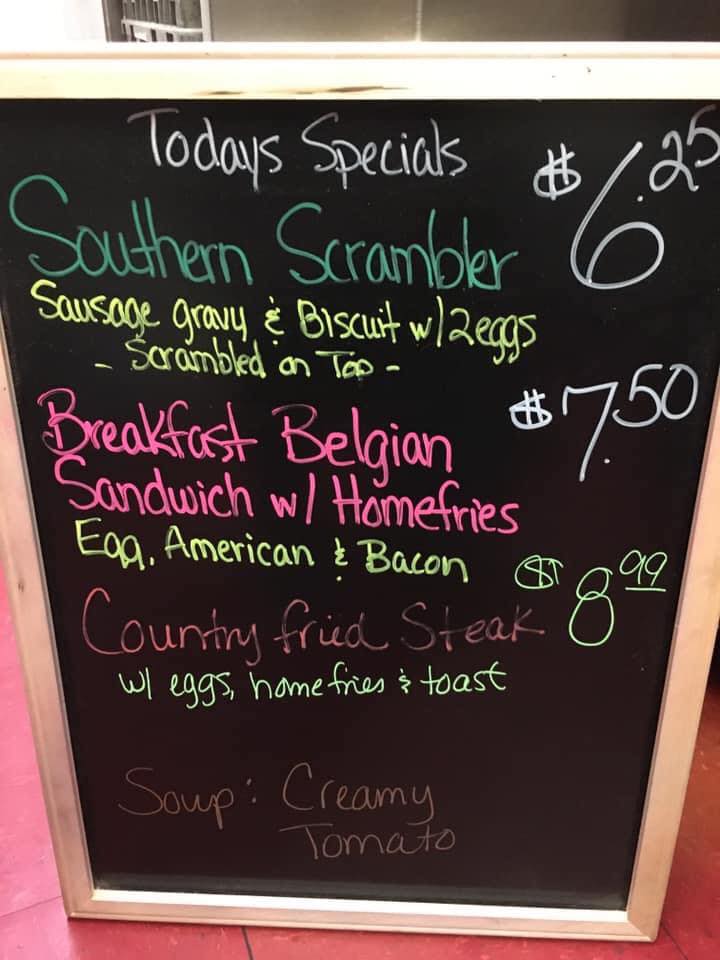 Todays Specials
Southern Scrambler $6.25
Sausage gravy & Biscuit w/2eggs
- Scrambled on Top -
Breakfast Belgian $7.50
Sandwich w/ Homefries
Egg, American & Bacon
Country fried Steak $8.99
w/ eggs, homefries & toast
Soup: Creamy
Tomato